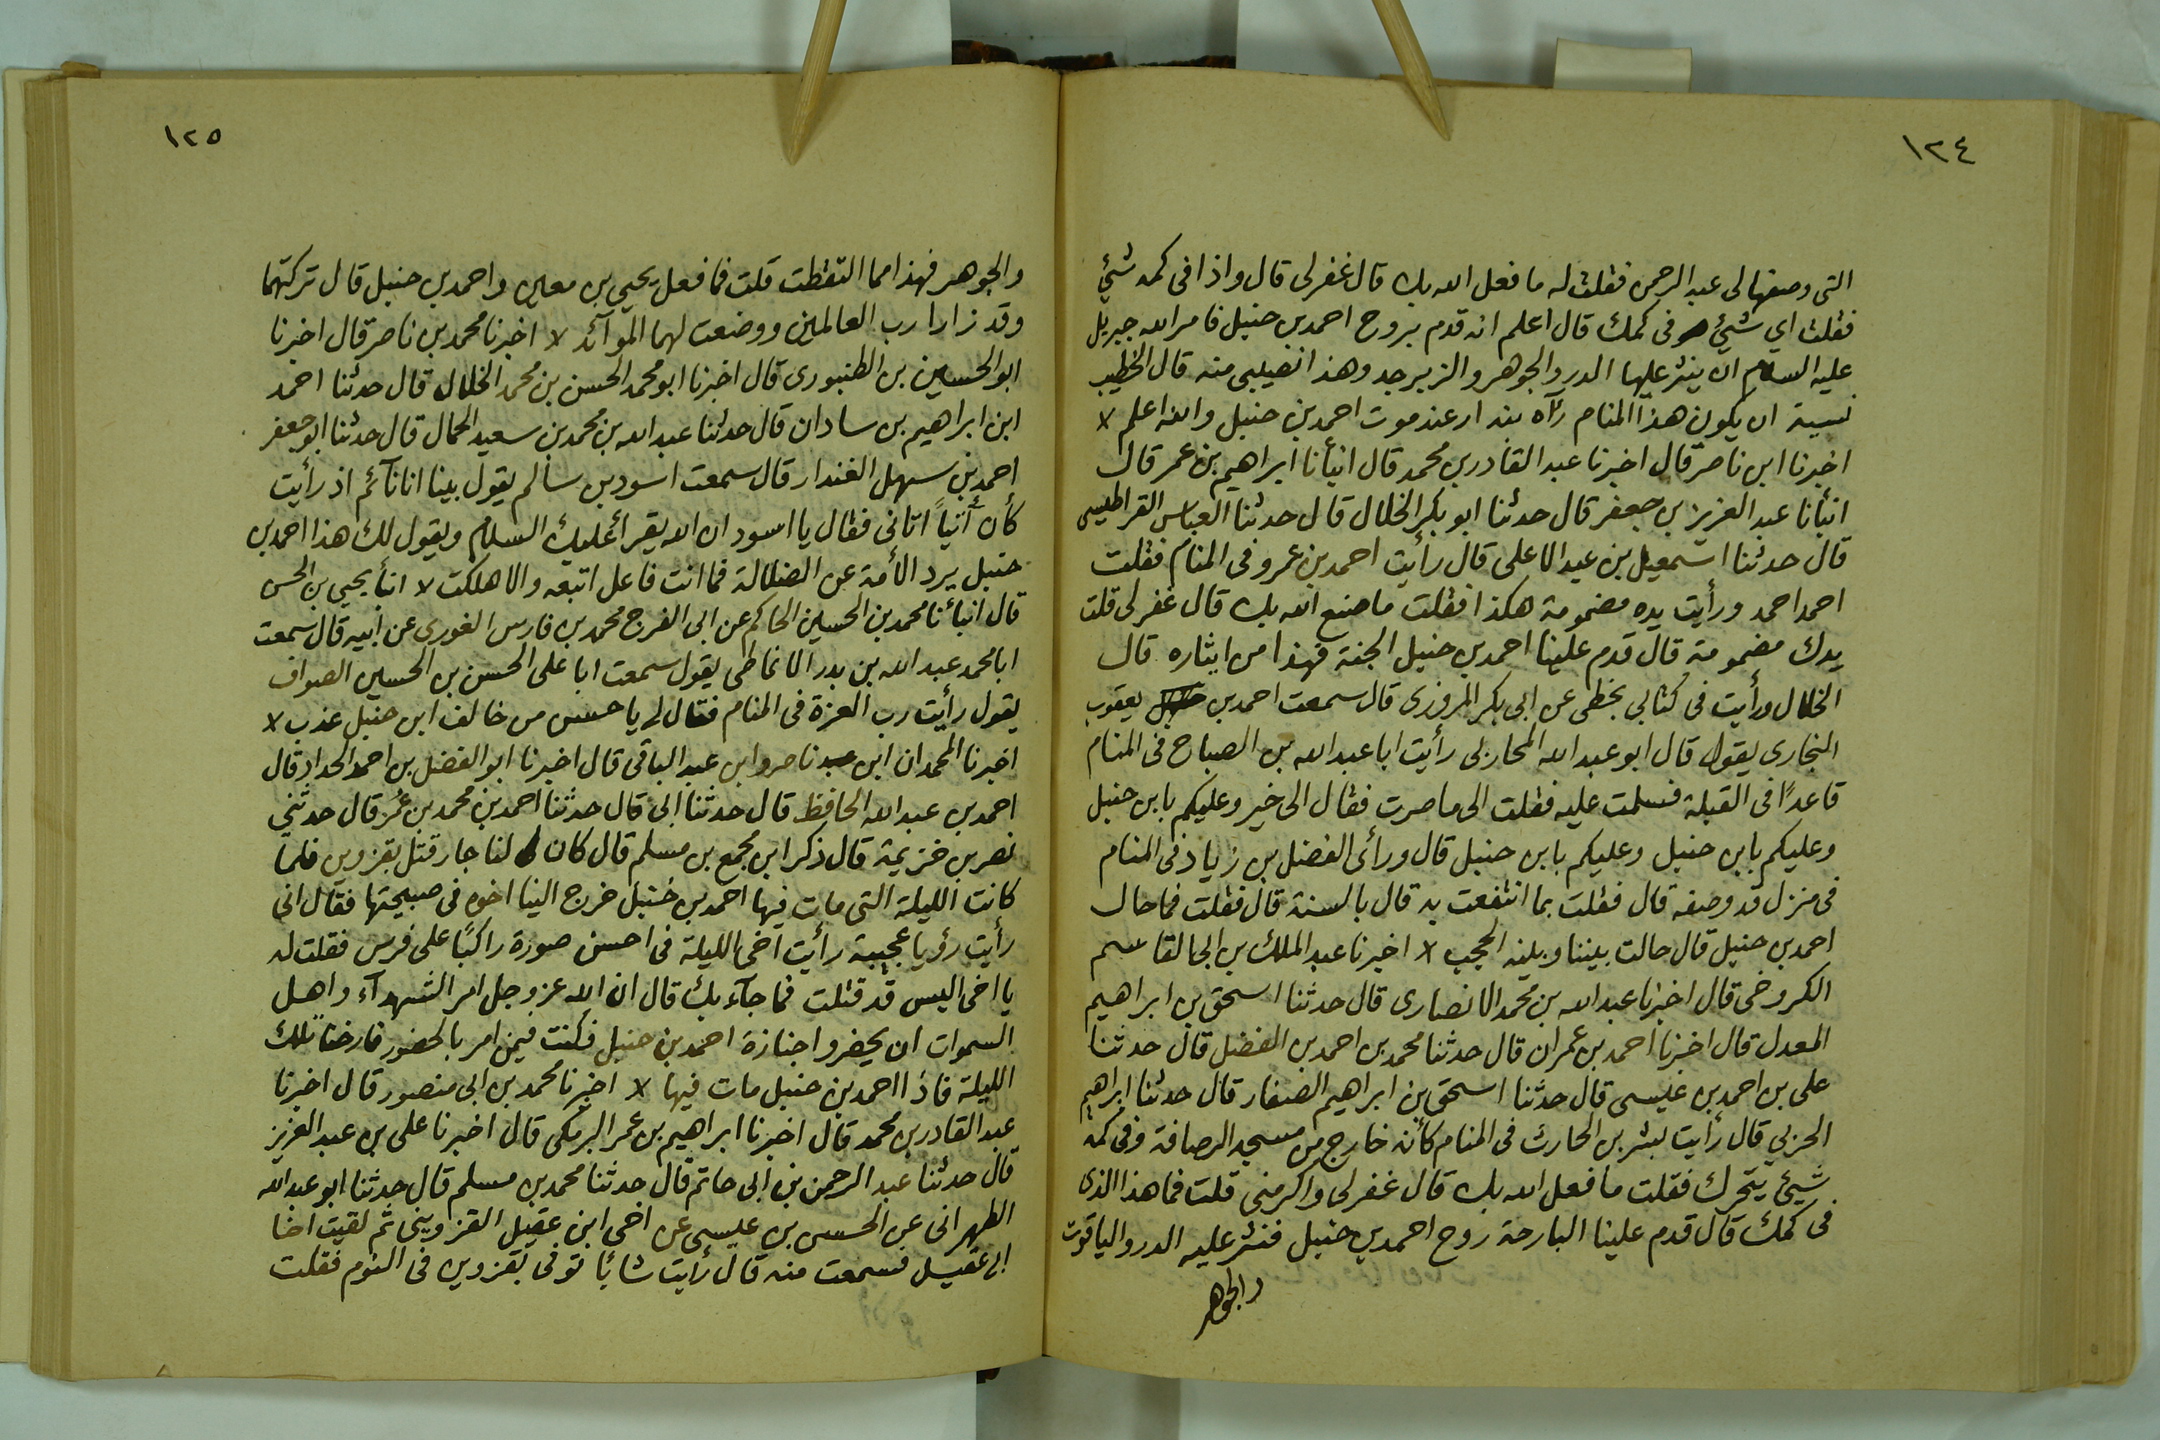 ١٢٤
التى وصفها لى عبد الرحمن فقلت له ما فعل الله بك قال غفر لى قال واذا فى كمه شئ
فقلت اي شئ فى كمك قال اعلم انه قدم بروح احمد بن حنبل فامر الله جبريل
عليه السلام ان ينثر عليها الدر والجوهر والزبرجد وهذا نصيبى منه قال الخطيب
نسبة ان يكون هذا المنام رآه بندار عند موت احمد بن حنبل والله اعلم لا
اخبرنا ابن ناصر قال اخبرنا عبد القادر بن محمد قال انبأنا ابراهيم بن عمر قال
انبأنا عبد العزيز بن جعفر قال حدثنا ابو بكر الخلال قال حدثنا العباس القراطيسى
قال حدثنا اسمعيل بن عبد الاعلى قال رأيت احمد بن عمر وفى المنام فقلت
احمد احمد ورأيت يده مضمومة هكذا فقلت ما صنع الله بك قال غفر لى قلت
يدك مضمومة قال قدم علينا احمد بن حنبل الجنة فهذا من ايثاره قال
الخلال ورأيت فى كتابى بخطى عن ابى بكر المروزى قال سمعت احمد بن يعقوب
البخارى يقول قال ابو عبد الله المحاربى رأيت ابا عبد الله بن الصباح فى المنام
قاعدًا فى القبلة فسلمت عليه فقلت الى ما صرت فقال الى خير وعليكم بابن حنبل
وعليكم بابن حنبل وعليكم بابن حنبل قال ورأى الفضل بن زياد فى المنام
فى منزل قد وصفه قال فقلت بما انتفعت به قال بالسنة قال فقلت فما حال
احمد بن حنبل قال حالت بيننا وبينه الحجب لا اخبرنا عبد الملك بن ابى القاسم
الكروخى قال اخبرنا عبد الله بن محمد الانصارى قال حدثنا اسحق بن ابراهيم
المعدل قال اخبرنا احمد بن عمران قال حدثنا محمد بن احمد بن الفضل قال حدثنا
على بن احمد بن عيسى قال حدثنا اسحق بن ابراهيم الصفار قال حدثنا ابراهيم
الحزبي قال رأيت بشر بن الحارث فى المنام كأنه خارج من مسجد الرصافة وفى كمه
شيئ يتحرك فقلت ما فعل الله بك قال غفر لى واكرمنى قلت فما هذا الذى
فى كمك قال قدم علينا البارحة روح احمد بن حنبل فنثر عليه الدر والياقوت
والجوهر
١٢٥
والجوهر فهذا مما التقطت قلت فما فعل يحيى بن معين واحمد بن حنبل قال تركتهما
وقد زارا رب العالمين ووضعت لهما الموآئد لا اخبرنا محمد بن ناصر قال اخبرنا
ابو الحسين بن الطنبورى قال اخبرنا ابو محمد الحسن بن محمد الخلال قال حدثنا احمد
ابن ابراهيم بن سادان قال حدثنا عبد الله بن محمد بن سعيد الحمال قال حدثنا ابو جعفر
احمد بن سهل الغندار قال سمعت اسود بن سالم يقول بينا انا نآئم اذ رأيت
كأن أتياً اتانى فقال يا اسود ان الله يقرا عليك السلام ويقول لك هذا احمد بن
حنبل يرد الأمة عن الضلالة فما انت فاعل اتبعه والا هلكت لا انبأ يحيى بن الحسن
قال انبائنا محمد بن الحسين الحاكم عن ابى الفرج محمد بن فارس الغورى عن ابيه قال سمعت
ابا محمد عبد الله بن بدر الانماطى يقول سمعت ابا على الحسن بن الحسين الصواف
يقول رأيت رب العزة فى المنام فقال لى يا حسن من خالف ابن حنبل عذب لا
اخبرنا المحمدان ابن ناصر وابن عبد الباقى قال اخبرنا ابو الفضل بن احمد الحداد قال
احمد بن عبد الله الحافظ قال حدثنا ابى قال حدثنا احمد بن محمد بن عمر قال حدثنى
نصر بن خزيمة قال ذكر ابن مجمع بن مسلم قال كان لنا جار قتل بقزوين فلما
كانت الليلة التى مات فيها احمد بن حنبل خرج الينا اخوه فى صبيحتها فقال انى
رأيت رؤيا عجيبة رأيت اخى الليلة فى احسن صورة راكبًا على فرس فقلت له
يا اخى اليس قد قتلت فما جآء بك قال ان الله عز وجل امر الشهدآء واهل
السموات ان يحضروا جنازة احمد بن حنبل فكنت فيمن امر بالحضور فارخنا تلك
الليلة فاذا احمد بن حنبل مات فيها لا اخبرنا محمد بن ابى منصور قال اخبرنا
عبد القادر بن محمد قال اخبرنا ابراهيم بن عمر البرمكى قال اخبرنا على بن عبد العزيز
قال حدثنا عبد الرحمن بن ابى حاتم قال حدثنا محمد بن مسلم قال حدثنا ابو عبد الله
الطهرانى عن الحسن بن عيسى عن اخى ابن عقيل القزوينى ثم لقيت اخا
ابى عقيل فسمعت منه قال رأيت شابًا توفى بقزوين فى النوم فقلت